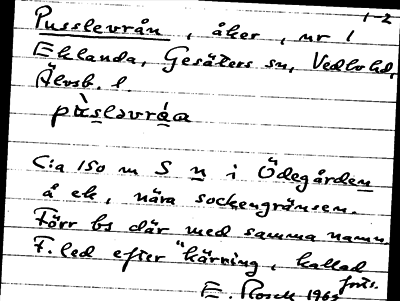 1-2
Pusslevrån, åker, nr 1
Eklanda, Gesäters sn, Vedbo hd,
Älvsb. l.
pùslavrá̱a
C:a 150 m S n i Ödegården
å ek, nära sockengränsen.
Förr bs där med samma namn.
F. led efter "kärning, kallad
forts.
E. Rosell 1965